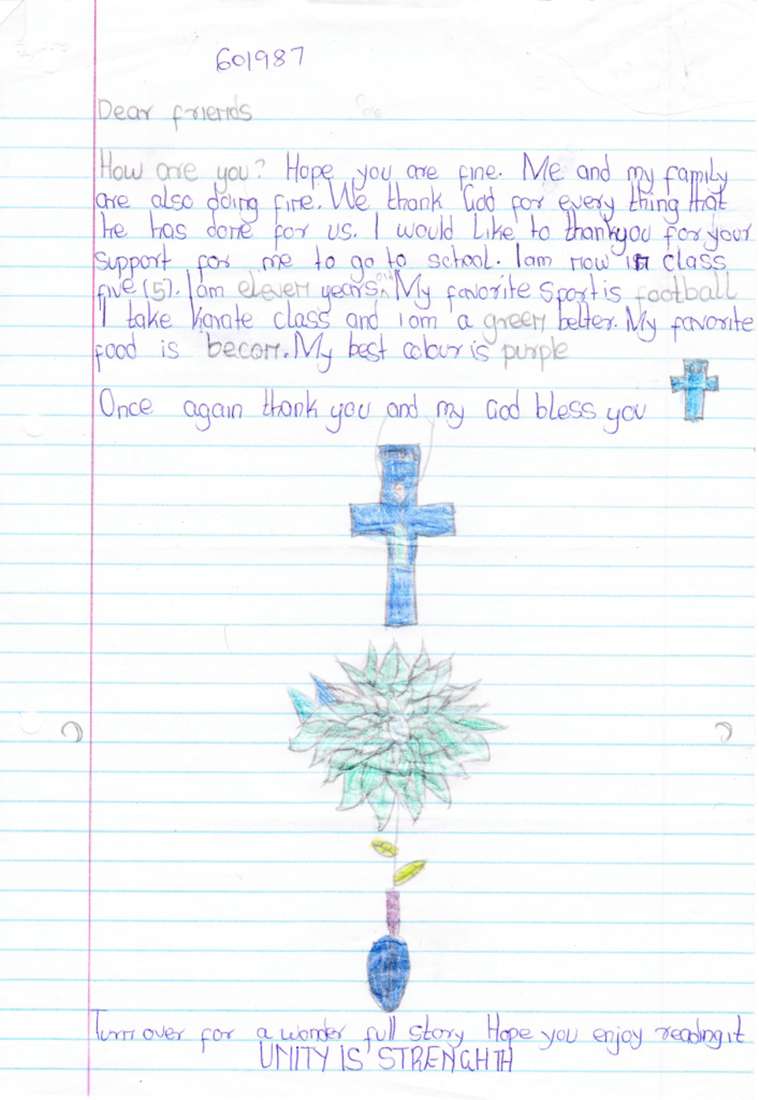 601987
Dear friends
How are you? Hope you are fine. Me and my family
are also doing fine. We thank God for every thing that
he has done for us. I would like to thankyou for your
support for me to go to school. Iam now in class
five (5). Iam eleven years old. My favorite sport is football
I take karate class and iam a green belter. My favorite
food is becon. My best colour is purple
Once again thank you and my God bless you
Turn over for a wonder full story Hope you enjoy reading it
UNITY IS STRENGHTH